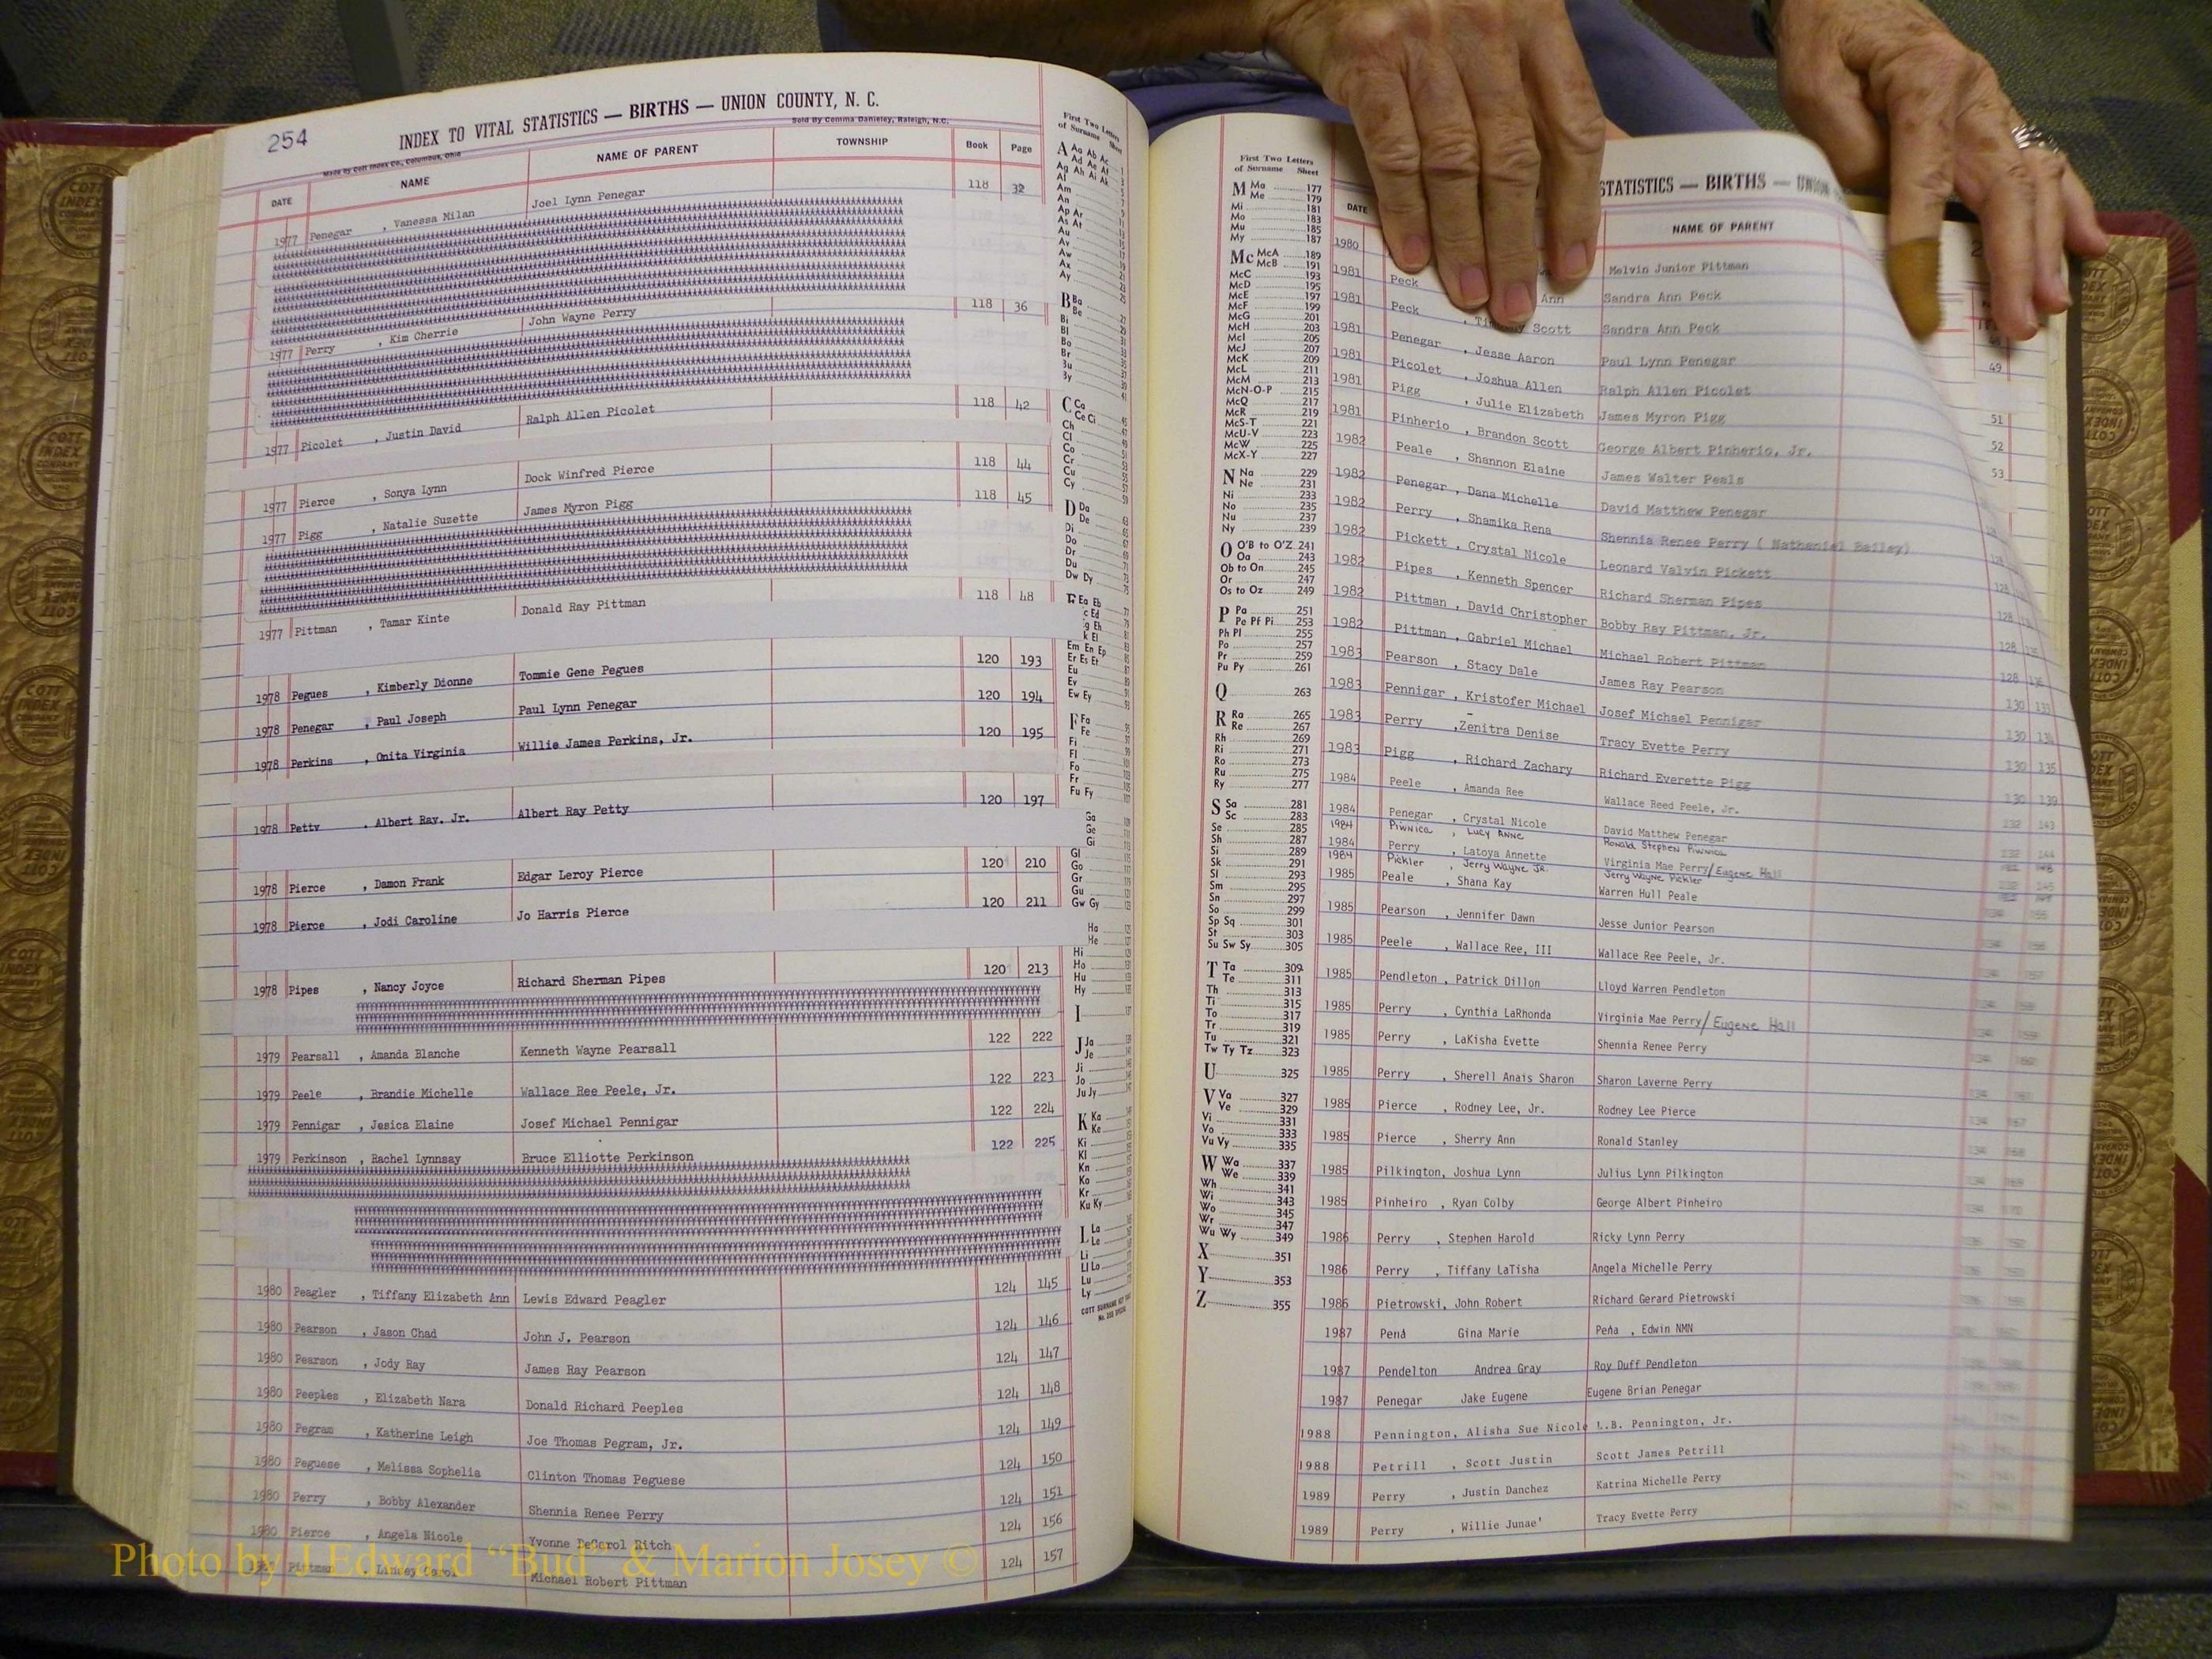 254
INDEX TO VITAL STATISTICS — BIRTHS — UNION COUNTY, N. C.
Made by Cott Index Co., Columbus, Ohio
Sold By Cemma Danieley, Raleigh, N.C.
DATE NAME NAME OF PARENT TOWNSHIP Book Page
1977 Penegar , Vanessa Milan Joel Lynn Penegar 118 32
1977 Perry , Kim Cherrie John Wayne Perry 118 36
1977 Picolet , Justin David Ralph Allen Picolet 118 42
1977 Pierce , Sonya Lynn Dock Winfred Pierce 118 44
1977 Pigg , Natalie Suzette James Myron Pigg 118 45
1977 Pittman , Tamar Kinte Donald Ray Pittman 118 48
1978 Pegues , Kimberly Dionne Tommie Gene Pegues 120 193
1978 Penegar , Paul Joseph Paul Lynn Penegar 120 194
1978 Perkins , Onita Virginia Willie James Perkins, Jr. 120 195
1978 Petty , Albert Ray. Jr. Albert Ray Petty 120 197
1978 Pierce , Damon Frank Edgar Leroy Pierce 120 210
1978 Pierce , Jodi Caroline Jo Harris Pierce 120 211
1978 Pipes , Nancy Joyce Richard Sherman Pipes 120 213
1979 Pearsall , Amanda Blanche Kenneth Wayne Pearsall 122 222
1979 Peele , Brandie Michelle Wallace Ree Peele, Jr. 122 223
1979 Pennigar , Jesica Elaine Josef Michael Pennigar 122 224
1979 Perkinson , Rachel Lynnsay Bruce Elliotte Perkinson 122 225
1980 Peagler , Tiffany Elizabeth Ann Lewis Edward Peagler 124 145
1980 Pearson , Jason Chad John J. Pearson 124 146
1980 Pearson , Jody Ray James Ray Pearson 124 147
1980 Peeples , Elizabeth Nara Donald Richard Peeples 124 148
1980 Pegram , Katherine Leigh Joe Thomas Pegram, Jr. 124 149
1980 Peguese , Melissa Sophelia Clinton Thomas Peguese 124 150
1980 Perry , Bobby Alexander Shennia Renee Perry 124 151
1980 Pierce , Angela Nicole Yvonne DeCerol Ritch 124 156
Pittman , Lindsy Carol Michael Robert Pittman 124 157
First Two Letters
of Surname Sheet
A Aa Ab Ac
Ad Ae Af
Ag Ah Ai Ak
Al
Am
An
Ap Ar
As At
Au
Av
Aw
Ax
Ay
B Ba
Be
Bi
Bl
Bo
Br
Bu
By
C Ca
Ce Ci
Ch
Cl
Co
Cr
Cu
Cy
D Da
De
Di
Do
Dr
Du
Dw Dy
E Ea Eb
Em En Ep
Er Es Et
Eu
Ev
Ew Ey
F Fa
Fe
Fi
Fl
Fo
Fr
Fu Fy
Ga
Ge
Gi
Gl
Go
Gr
Gu
Gw Gy
Ha
He
Hi
Ho
Hu
Hy
I
J Ja
Je
Ji
Jo
Ju Jy
K Ka
Ke
Ki
Kl
Kn
Ko
Kr
Ku Ky
L La
Le
Li
Ll Lo
Lu
Ly
First Two Letters
of Surname Sheet
M Ma 177
Me 179
Mi 181
Mo 183
Mu 185
My 187
Mc McA 189
McB 191
McC 193
McD 195
McE 197
McF 199
McG 201
McH 203
McI 205
McJ 207
McK 209
McL 211
McM 213
McN-O-P 215
McQ 217
McR 219
McS-T 221
McU-V 223
McW 225
McX-Y 227
N Na 229
Ne 231
Ni 233
No 235
Nu 237
Ny 239
O O'B to O'Z 241
Oa 243
Ob to On 245
Or 247
Os to Oz 249
P Pa 251
Pe Pf Pi 253
Ph Pl 255
Po 257
Pr 259
Pu Py 261
Q 263
R Ra 265
Re 267
Rh 269
Ri 271
Ro 273
Ru 275
Ry 277
S Sa 281
Sc 283
Se 285
Sh 287
Si 289
Sk 291
Sl 293
Sm 295
Sn 297
So 299
Sp Sq 301
St 303
Su Sw Sy 305
T Ta 309
Te 311
Th 313
Ti 315
To 317
Tr 319
Tu 321
Tw Ty Tz 323
U 325
V Va 327
Ve 329
Vi 331
Vo 333
Vu Vy 335
W Wa 337
We 339
Wh 341
Wi 343
Wo 345
Wr 347
Wu Wy 349
X 351
Y 353
Z 355
STATISTICS — BIRTHS — UNION
DATE NAME OF PARENT
1980 Melvin Junior Pittman
1981 Peck Ann Sandra Ann Peck
1981 Peck , Timothy Scott Sandra Ann Peck
1981 Penegar , Jesse Aaron Paul Lynn Penegar
1981 Picolet , Joshua Allen Ralph Allen Picolet
1981 Pigg , Julie Elizabeth James Myron Pigg
1981 Pinherio , Brandon Scott George Albert Pinherio, Jr.
1982 Peale , Shannon Elaine James Walter Peals
1982 Penegar , Dana Michelle David Matthew Penegar
1982 Perry , Shamika Rena Shennia Renee Perry ( Nathaniel Bailey)
1982 Pickett , Crystal Nicole Leonard Valvin Pickett
1982 Pipes , Kenneth Spencer Richard Sherman Pipes
1982 Pittman , David Christopher Bobby Ray Pittman, Jr.
1982 Pittman , Gabriel Michael Michael Robert Pittman
1983 Pearson , Stacy Dale James Ray Pearson
1983 Pennigar , Kristofer Michael Josef Michael Pennigar
1983 Perry ,Zenitra Denise Tracy Evette Perry
1983 Pigg , Richard Zachary Richard Everette Pigg
1984 Peele , Amanda Ree Wallace Reed Peele, Jr.
1984 Penegar , Crystal Nicole David Matthew Penegar
1984 Piwnica , Lucy Anne Ronald Stephen Piwnica
1984 Perry , Latoya Annette Virginia Mae Perry/Eugene Hall
1984 Pickler , Jerry Wayne Jr. Jerry Wayne Pickler
1985 Peale , Shana Kay Warren Hull Peale
1985 Pearson , Jennifer Dawn Jesse Junior Pearson
1985 Peele , Wallace Ree, III Wallace Ree Peele, Jr.
1985 Pendleton , Patrick Dillon Lloyd Warren Pendleton
1985 Perry , Cynthia LaRhonda Virginia Mae Perry/Eugene Hall
1985 Perry , LaKisha Evette Shennia Renee Perry
1985 Perry , Sherell Anais Sharon Sharon Laverne Perry
1985 Pierce , Rodney Lee, Jr. Rodney Lee Pierce
1985 Pierce , Sherry Ann Ronald Stanley
1985 Pilkington, Joshua Lynn Julius Lynn Pilkington
1985 Pinheiro , Ryan Colby George Albert Pinheiro
1986 Perry , Stephen Harold Ricky Lynn Perry
1986 Perry , Tiffany LaTisha Angela Michelle Perry
1986 Pietrowski, John Robert Richard Gerard Pietrowski
1987 Pená Gina Marie Peña , Edwin NMN
1987 Pendelton Andrea Gray Roy Duff Pendleton
1987 Penegar Jake Eugene Eugene Brian Penegar
1988 Pennington, Alisha Sue Nicole L.B. Pennington, Jr.
1988 Petrill , Scott Justin Scott James Petrill
1989 Perry , Justin Danchez Katrina Michelle Perry
1989 Perry , Willie Junae' Tracy Evette Perry
49
51
52
53
Photo by J Edward "Bud" & Marion Josey ©